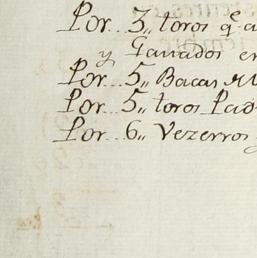 Por.. 3,, toros q.e a
y Ganados en
Por.. 5,, Bacas
Por... 5,, toros Pad
Por... 6,, Vezerros